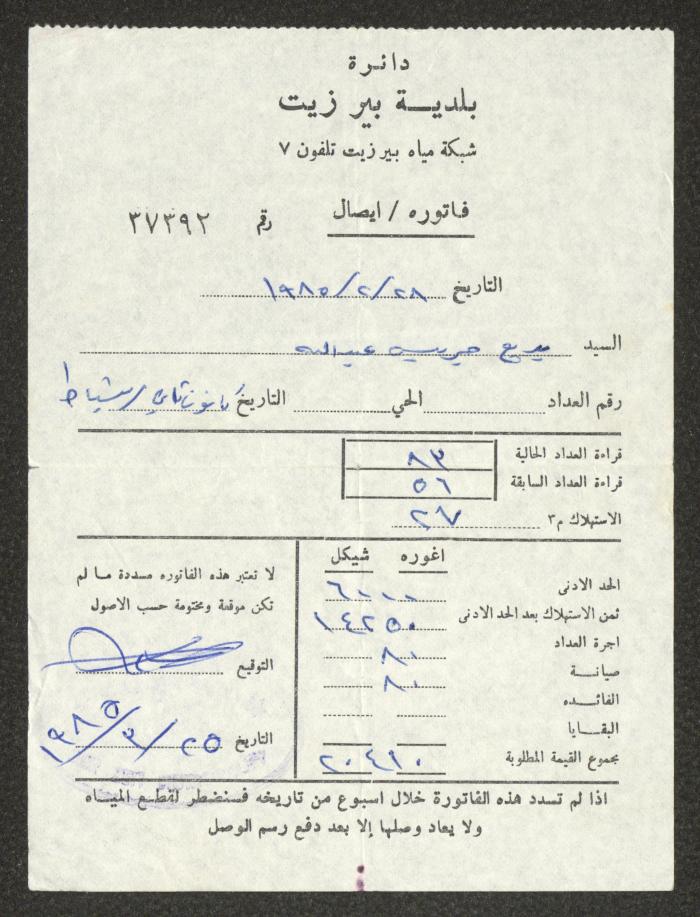 دائرة
بلديـــة بير زيت
شبكة مياه بيرزيت تلفون ٧
فاتوره / ايصال
رقم ٣٧٣٩٢
التاريخ ٢٨/٢/١٩٨٥
السيد بديع جريس عبدالله
رقم العداد الحي التاريخ كانون ثاني + شباط
قراءة العداد الحالية ٨٣
قراءة العداد السابقة ٥٦
الاستهلاك م٣ ٢٧
اغوره شيكل
الحد الادنى ٦٠٠٠
ثمن الاستهلاك بعد الحد الادنى ١٤٢٥٠
اجرة العداد ٨٠
صيانـــة ٨٠
الفائـــده
البقـــايا
مجموع القيمة المطلوبة ٢٠٤١٠
لا تعتبر هذه الفاتوره مسددة مـا لم
تكن موقعة ومختومة حسب الاصول
التوقيع
التاريخ ٢٥/٣/١٩٨٥
اذا لم تسدد هذه الفاتورة خلال اسبوع من تاريخه فسنضطر لقطـع المياه
ولا يعاد وصلها إلا بعد دفع رسم الوصل